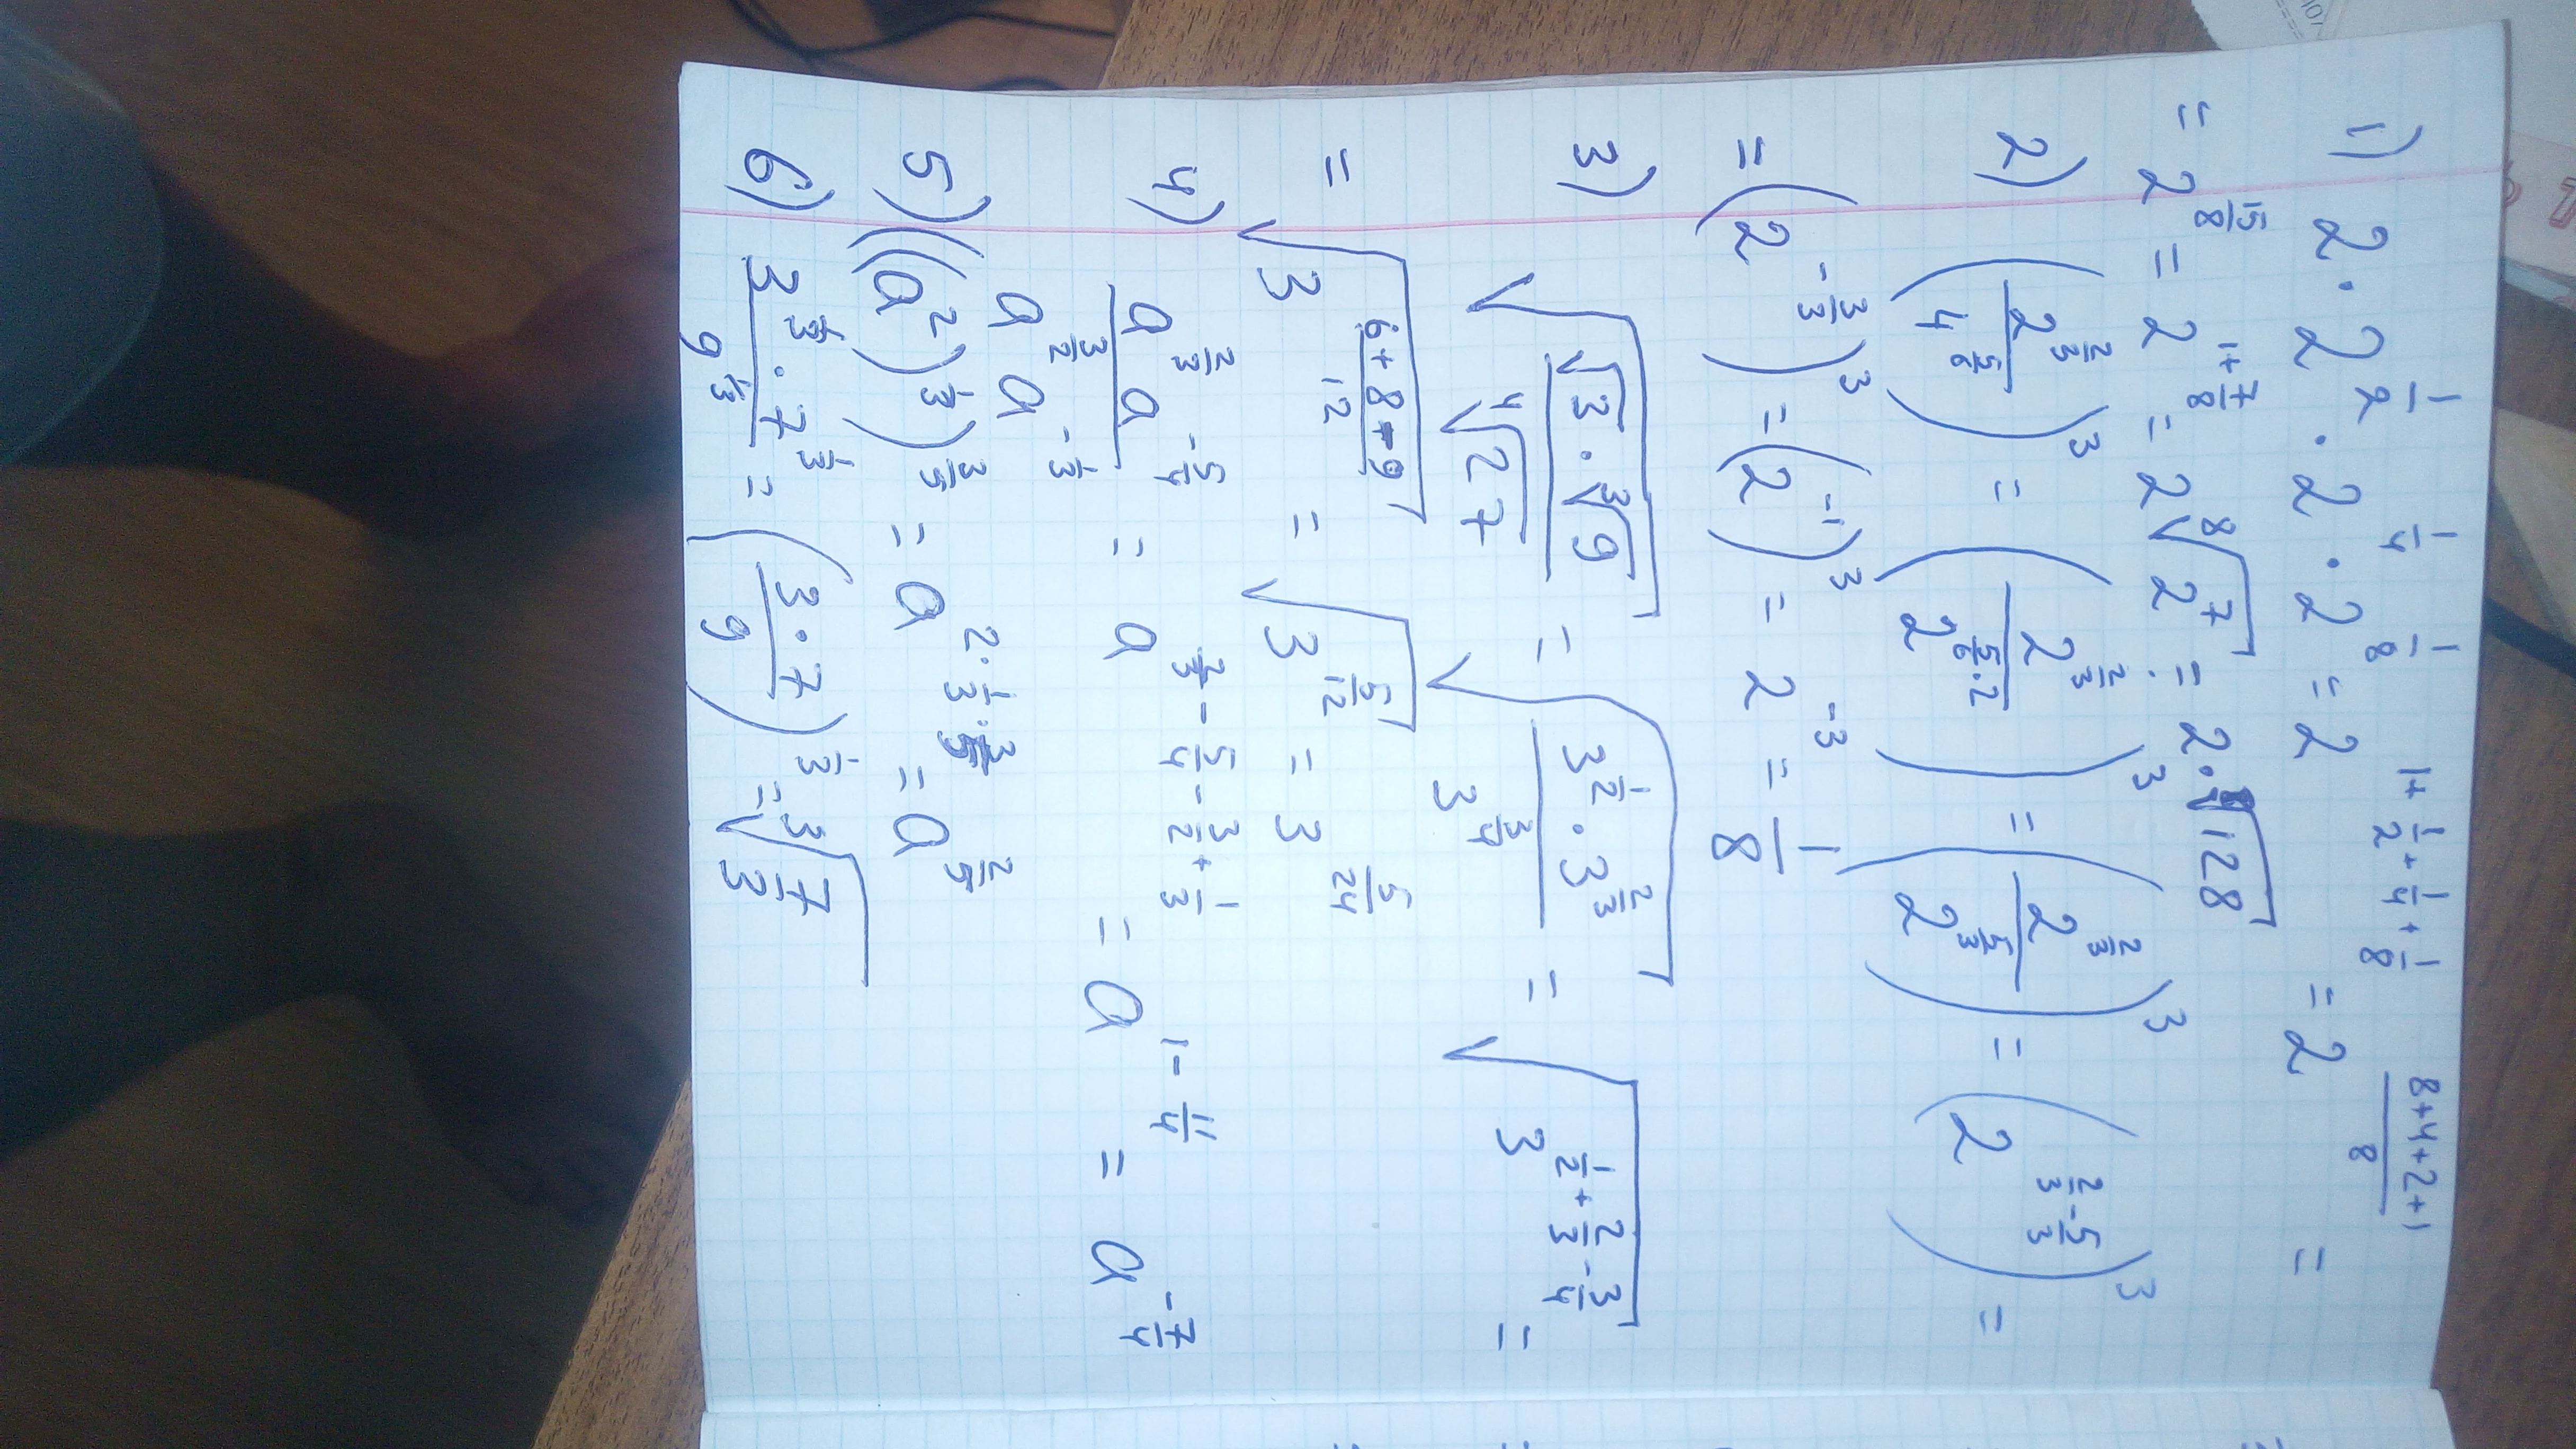 1) 2 · 2^{1/2} · 2^{1/4} · 2^{1/8} = 2^{1+1/2+1/4+1/8} = 2^{(8+4+2+1)/8} =
= 2^{15/8} = 2^{1+7/8} = 2\sqrt[8]{2^7} = 2·\sqrt[8]{128}
2) (2^{2/3}/4^{5/6})^3 = (2^{2/3}/2^{5/6·2})^3 = (2^{2/3}/2^{5/3})^3 = (2^{2/3-5/3})^3 =
= (2^{-3/3})^3 = (2^{-1})^3 = 2^{-3} = 1/8
3) \sqrt{(\sqrt{3}·\sqrt[3]{9})/\sqrt[4]{27}} = \sqrt{(3^{1/2}·3^{2/3})/3^{3/4}} = \sqrt{3^{1/2+2/3-3/4}} =
= \sqrt{3^{(6+8-9)/12}} = \sqrt{3^{5/12}} = 3^{5/24}
4) (a^{2/3} a^{-5/4})/(a^{3/2} a^{-1/3}) = a^{2/3-5/4-3/2+1/3} = a^{1-11/4} = a^{-7/4}
5) ((a^2)^{1/3})^{3/5} = a^{2·1/3·3/5} = a^{2/5}
6) (3^{1/3}·7^{1/3})/9^{1/3} = ((3·7)/9)^{1/3} = \sqrt[3]{7/3}